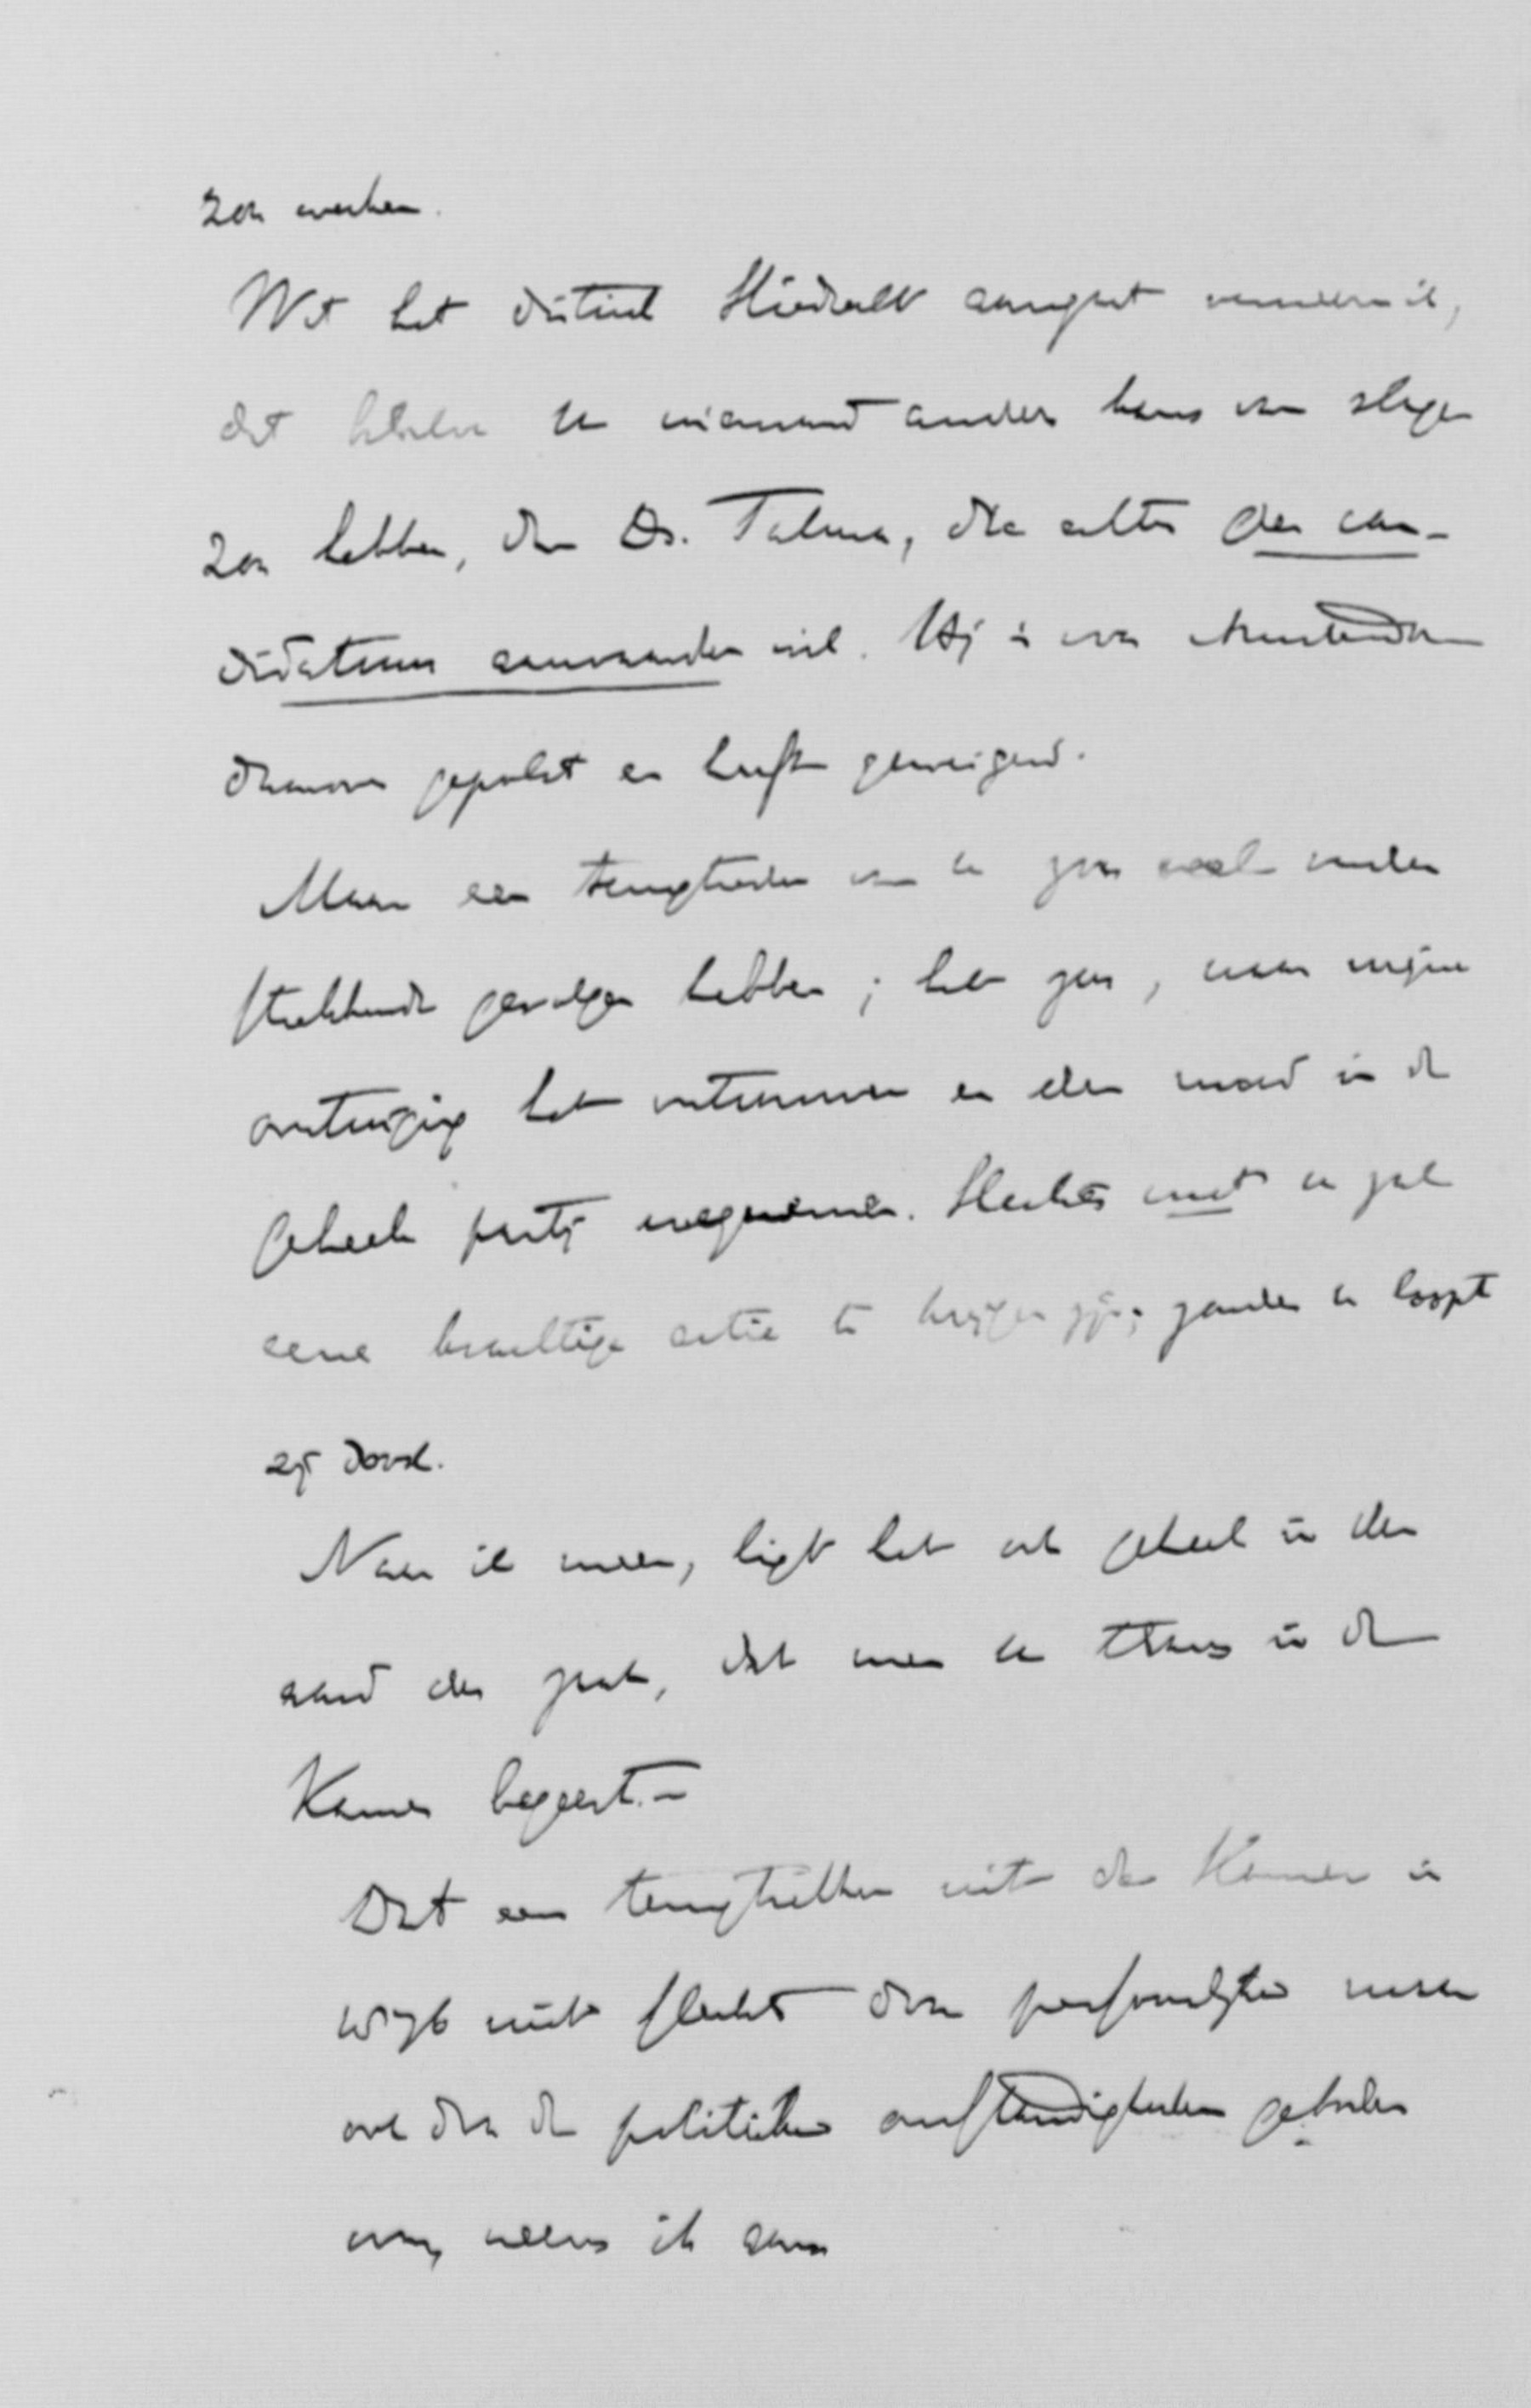 zou werken.
Wat het district Sliedrecht aangaat verneem ik,
dat behalve U niemand anders kans van slagen
zou hebben, dan Ds. Talma, die echter geen can-
didatuur aanvaarden wil. Hij is voor Amsterdam
daarvoor gepolst en heeft geweigerd.
Maar een terugtreden van U zou veel verder
strekkende gevolgen hebben; het zou, naar mijne
overtuiging het vertrouwen en den moed in de
geheele partij wegnemen. Slechts met U zal
eene krachtige actie te krijgen zijn; zonder U loopt
zij dood.
Naar ik meen, ligt het ook geheel in den
aard der zaak, dat men U thans in de
Kamer begeert.–
Dat een terugtrekken uit de Kamer in
wijst niet slechts door persoonlijke maar
ook door de politieke omstandigheden geboden
was, neem ik aan